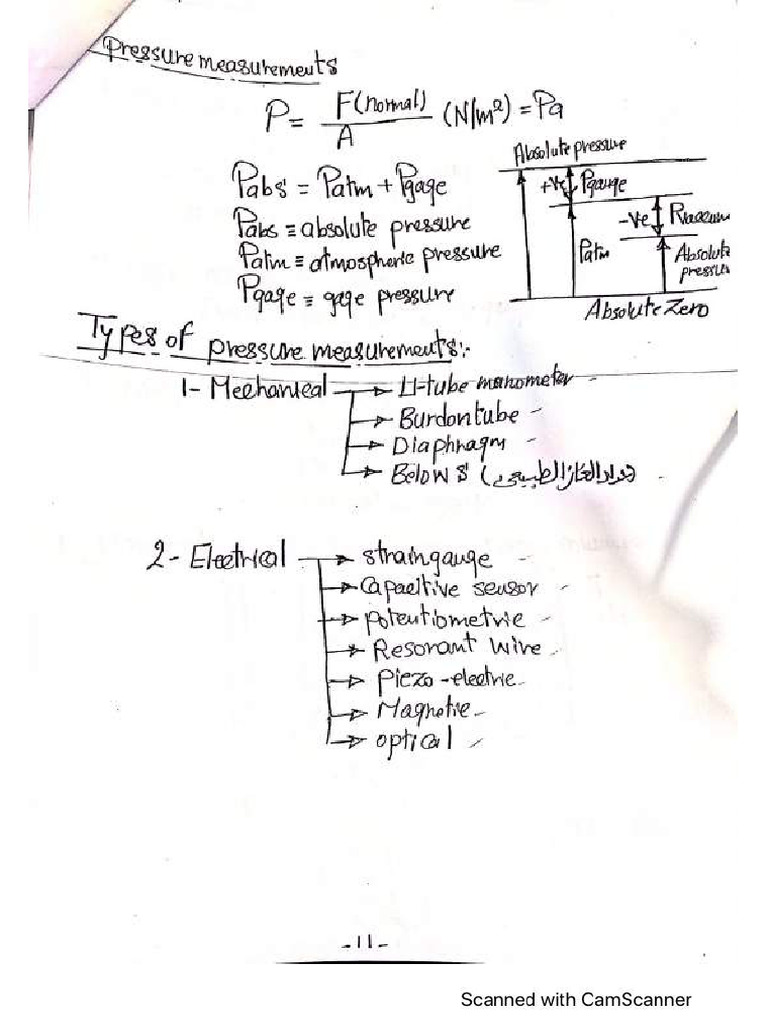 Pressure measurements
P = F(normal) / A (N/m²) = Pa
Pabs = Patm + Pgage
Pabs ≡ absolute pressure
Patm ≡ atmospheric pressure
Pgage ≡ gage pressure
Absolute pressure
+Ve Pgauge
-Ve Pvaccum
Patm
Absolute
pressu
Absolute Zero
Types of pressure measurements:-
1- Mechanical → U-tube manometer -
→ Burdontube -
→ Diaphragm -
→ Belows (الغاز الطبيعى) -
2- Electrical → strain gauge -
→ Capacitive sensor -
→ potentiometric -
→ Resonant wire -
→ Piezo-electric -
→ Magnetic -
→ optical -
-11-
Scanned with CamScanner